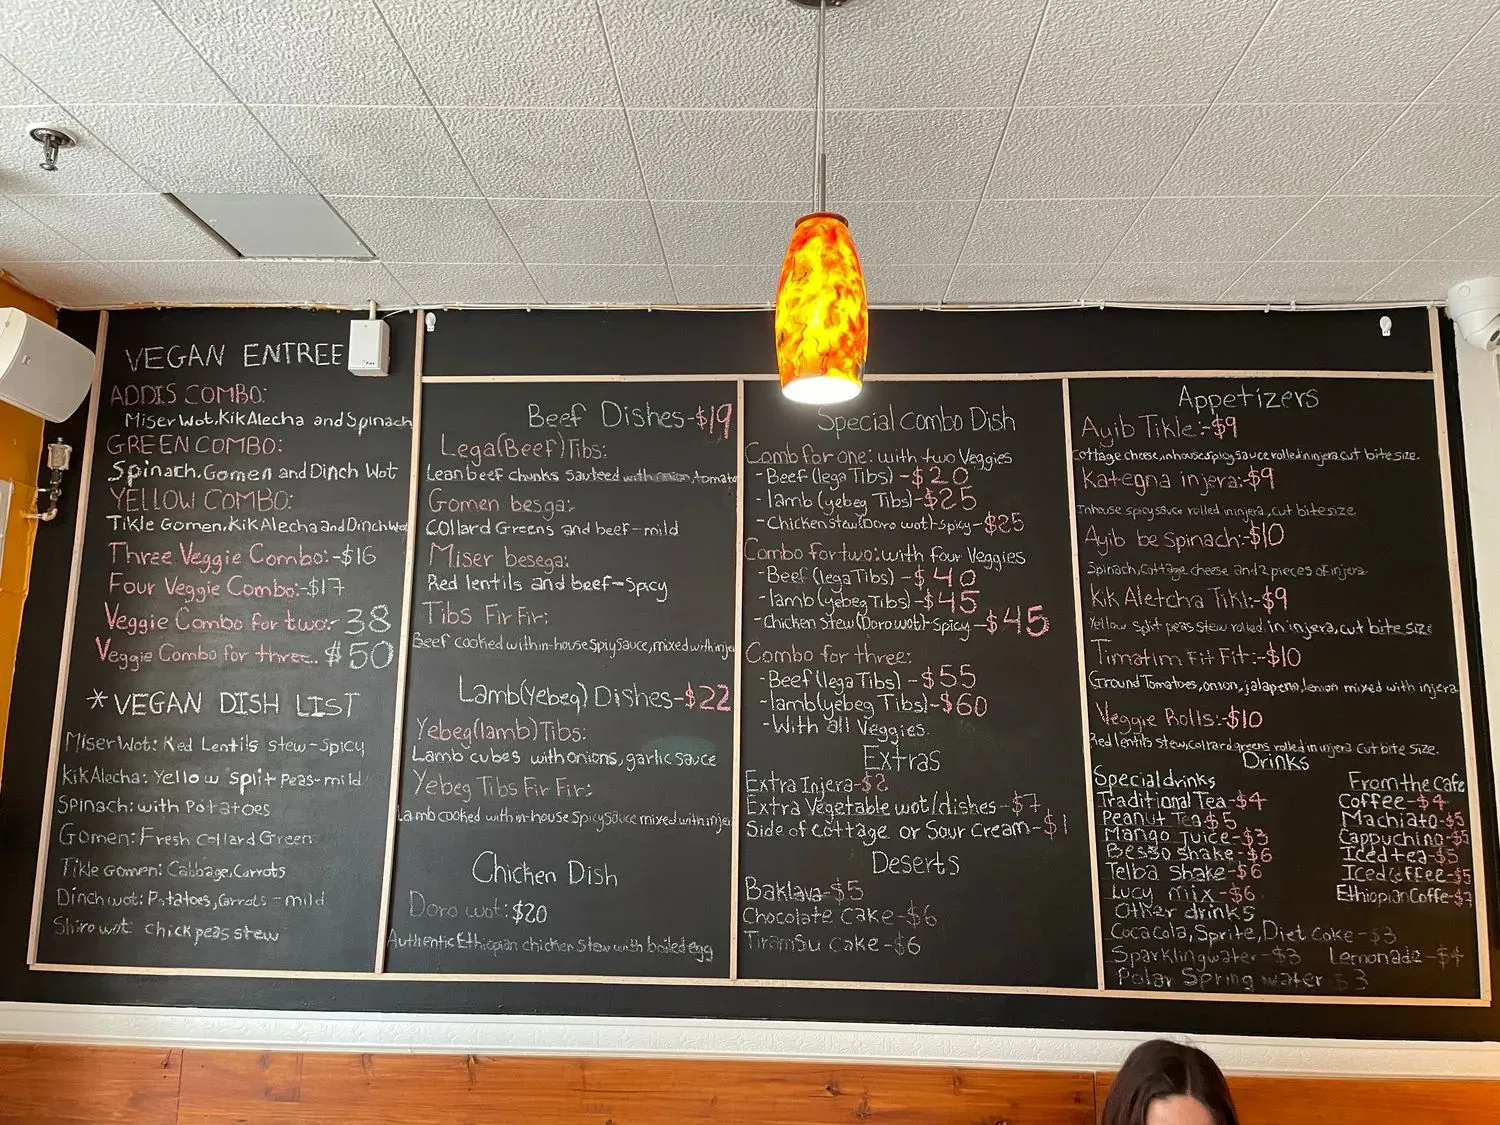 VEGAN ENTREE
ADDIS COMBO:
Miser Wot, Kik Alecha and Spinach
GREEN COMBO:
Spinach, Gomen and Dinch Wot
YELLOW COMBO:
Tikle Gomen, Kik Alecha and Dinch Wot
Three Veggie Combo:-$16
Four Veggie Combo:-$17
Veggie Combo for two:- 38
Veggie Combo for three.. $50
*VEGAN DISH LIST
Miser Wot: Red Lentils stew-Spicy
Kik Alecha: Yellow Split Peas-mild
Spinach: with Potatoes
Gomen: Fresh Collard Green
Tikle Gomen: Cabbage, Carrots
Dinch wot: Potatoes, Carrots - mild
Shiro wot: chick peas stew
Beef Dishes-$19
Lega(Beef)Tibs:
Lean beef chunks sauteed with onion, tomato
Gomen besga:
Collard Greens and beef-mild
Miser besega:
Red lentils and beef-Spicy
Tibs Fir Fir:
Beef cooked with in-house Spicy Sauce, mixed with injer
Lamb(Yebeg) Dishes-$22
Yebeg(lamb)Tibs:
Lamb cubes with onions, garlic sauce
Yebeg Tibs Fir Fir:
Lamb cooked with in-house Spicy Sauce mixed with injer
Chicken Dish
Doro wot: $20
Authentic Ethiopian chicken Stew with boiled egg
Special Combo Dish
Comb for one: with two Veggies
-Beef (lega Tibs) -$20
-lamb (yebeg Tibs)-$25
-Chicken stew (Doro wot)-Spicy-$25
Combo for two: with four Veggies
-Beef (lega Tibs) -$40
-lamb(yebeg Tibs)-$45
-Chicken Stew (Doro wot)-Spicy-$45
Combo for three:
-Beef(lega Tibs) -$55
-lamb(yebeg Tibs)-$60
-With all Veggies.
Extras
Extra Injera-$2
Extra Vegetable wot/dishes-$7
Side of Cottage or Sour Cream-$1
Deserts
Baklava-$5
Chocolate Cake-$6
Tiramsu cake-$6
Appetizers
Ayib Tikle:-$9
Cottage cheese, inhouse spicy sauce rolled in injera cut bite size.
Kategna injera:-$9
Inhouse spicy sauce rolled in injera, cut bite size.
Ayib be Spinach:-$10
Spinach, Cottage cheese and 2 pieces of injera
Kik Aletcha Tikl:-$9
Yellow split peas stew rolled in injera, cut bite size
Timatim Fit Fit:-$10
Ground Tomatoes, onion, jalapeno, lemon mixed with injera
Veggie Rolls:-$10
Red lentils stew, collard greens rolled in injera cut bite size.
Drinks
Special drinks
Traditional Tea-$4
Peanut Tea $5
Mango Juice-$3
Besso shake-$6
Telba shake-$6
Lucy mix-$6
From the Cafe
Coffee-$4
Machiato-$5
Cappuchino-$5
Iced tea-$5
Iced Coffee-$5
Ethiopian Coffe-$7
Other drinks
Coca cola, Sprite, Diet Coke-$3
Sparkling water-$3 Lemonade-$4
Polar Spring water $3